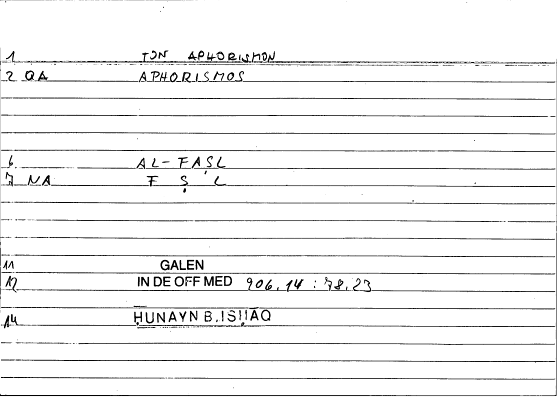 1 TON APHORISMON
2 QA APHORISMOS
6 AL-FAṢL
7 NA F Ṣ L
11 GALEN
12 IN DE OFF MED 906.14 : 78.23
14 ḤUNAYN B. ISḤĀQ